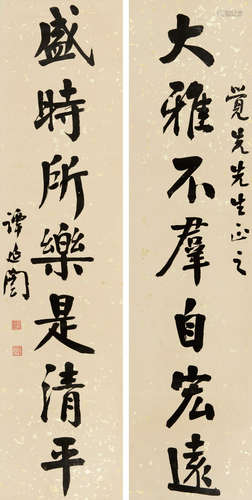 覺先先生正之
大雅不羣自宏遠
盛時所樂是清平
譚延闓